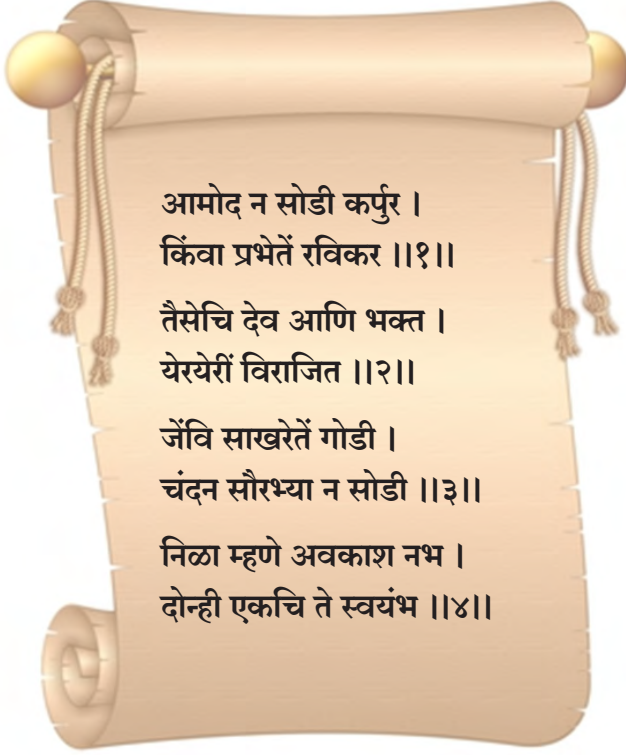 आमोद न सोडी कर्पुर ।
किंवा प्रभेतें रविकर ।।१।।
तैसेचि देव आणि भक्त ।
येरयेरीं विराजित ।।२।।
जेंवि साखरेतें गोडी ।
चंदन सौरभ्या न सोडी ।।३।।
निळा म्हणे अवकाश नभ ।
दोन्ही एकचि ते स्वयंभ ।।४।।